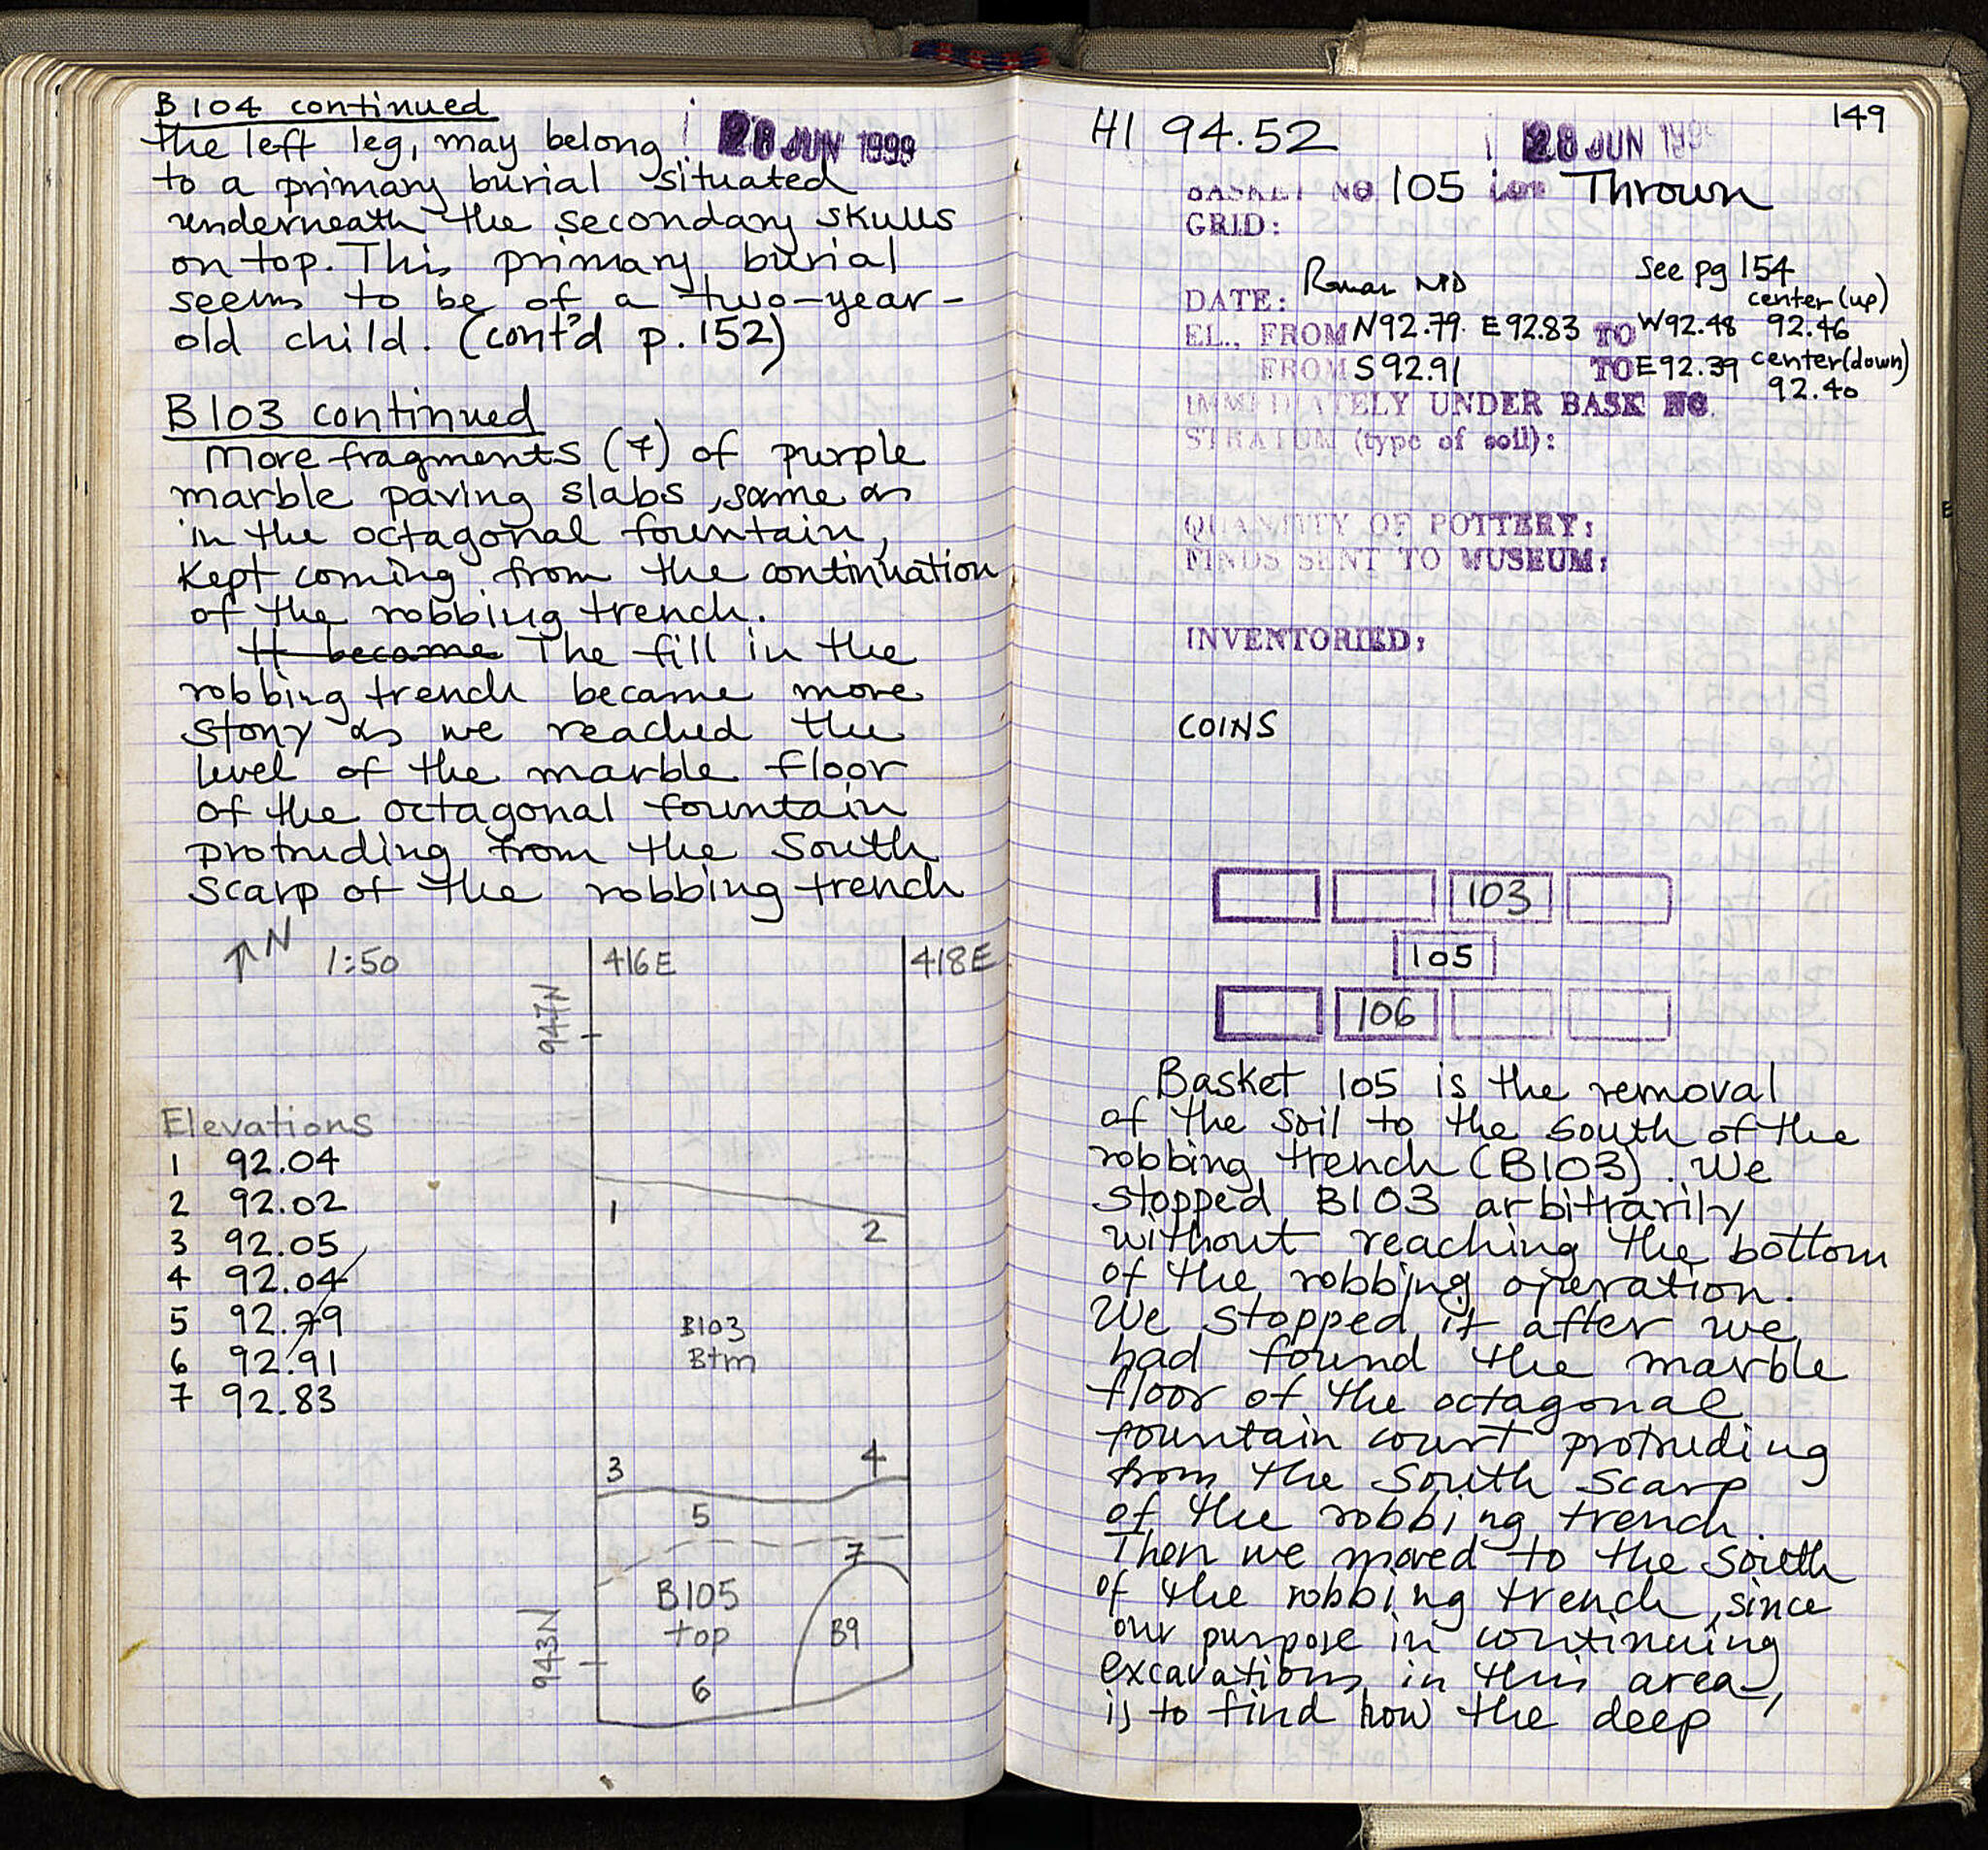 B104 continued
the left leg, may belong
28 JUN 1999
to a primary burial situated
underneath the secondary skulls
on top. This primary burial
seems to be of a two-year-
old child. (cont'd p.152)
B103 continued
More fragments (7) of purple
marble paving slabs, same as
in the octagonal fountain,
kept coming from the continuation
of the robbing trench.
It became The fill in the
robbing trench became more
stony as we reached the
level of the marble floor
of the octagonal fountain
protruding from the South
scarp of the robbing trench
N
1:50
416E
418E
947N
Elevations
1 92.04
2 92.02
3 92.05
4 92.04
5 92.79
6 92.91
7 92.83
1
2
B103
Btm
3
4
5
7
B105
top
B9
943N
6
149
HI 94.52
28 JUN 199
BASKET NO 105 Thrown
GRID:
See pg 154
DATE: Roman
center (up)
EL., FROM N92.79. E92.83 TO W92.48 92.46
FROM S92.91 TO E92.39 center(down)
92.40
IMMEDIATELY UNDER BASK NO
STRATUM (type of soil):
QUANTITY OF POTTERY:
FINDS SENT TO MUSEUM:
INVENTORIED:
COINS
103
105
106
Basket 105 is the removal
of the soil to the south of the
robbing trench (B103). We
stopped B103 arbitrarily
without reaching the bottom
of the robbing operation.
We stopped it after we
had found the marble
floor of the octagonal
fountain court protruding
from the South scarp
of the robbing trench.
Then we moved to the South
of the robbing trench, since
our purpose in continuing
excavations in this area,
is to find how the deep